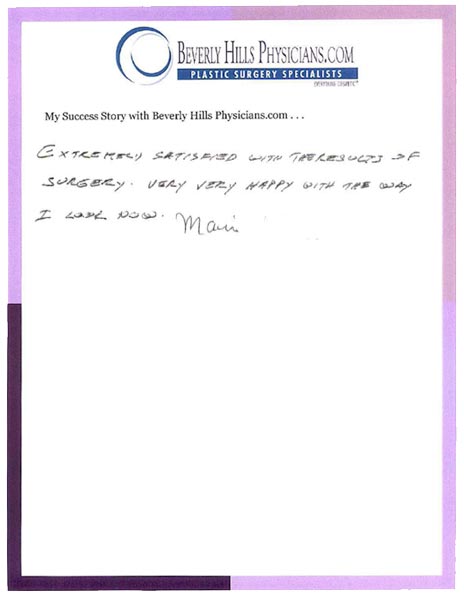 BEVERLY HILLS PHYSICIANS.COM
PLASTIC SURGERY SPECIALISTS
My Success Story with Beverly Hills Physicians.com . . .
EXTREMELY SATISFIED WITH THE RESULTS OF
SURGERY. VERY VERY HAPPY WITH THE WAY
I LOOK NOW.